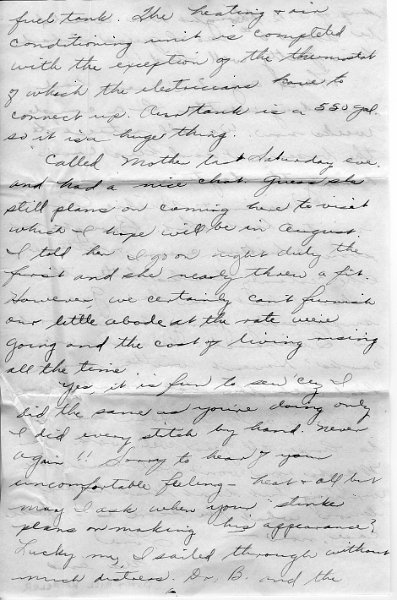 fuel tank. The heating & air
conditioning unit is completed
with the exception of the thermostat
of which the electricians have to
connect up. Our tank is a 550 gal.
so it is a huge thing.
Called Mother last Saturday eve.
and had a nice chat. Guess she
still plans on coming here to visit
which I hope will be in August.
I told her I go on night duty the
first and she nearly threw a fit.
However, we certainly can't furnish
our little abode at the rate were
going and the cost of living rising
all the time.
Yes, it is fun to sew I
did the same as you're doing only
I did every stitch by hand. Never
again!! Sorry to hear of your
uncomfortable feeling - heat & all but
may I ask when your "stinker"
plans on making his appearance?
Lucky me, I sailed through without
much distress. Dr. B. and the